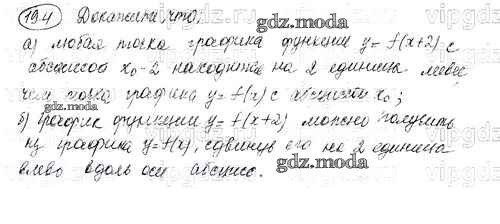 19.4 Докажите, что:
а) любая точка графика функции y = f(x+2) с
абсциссой x₀-2 находится на 2 единицы левее
чем точка графика y = f(x) с абсциссой x₀;
б) график функции y = f(x+2) можно получить
из графика y = f(x), сдвинув его на 2 единицы
влево вдоль оси абсцисс.
gdz.moda
gdz.moda
gdz.moda
gdz.moda
vipgdz
vipgdz.